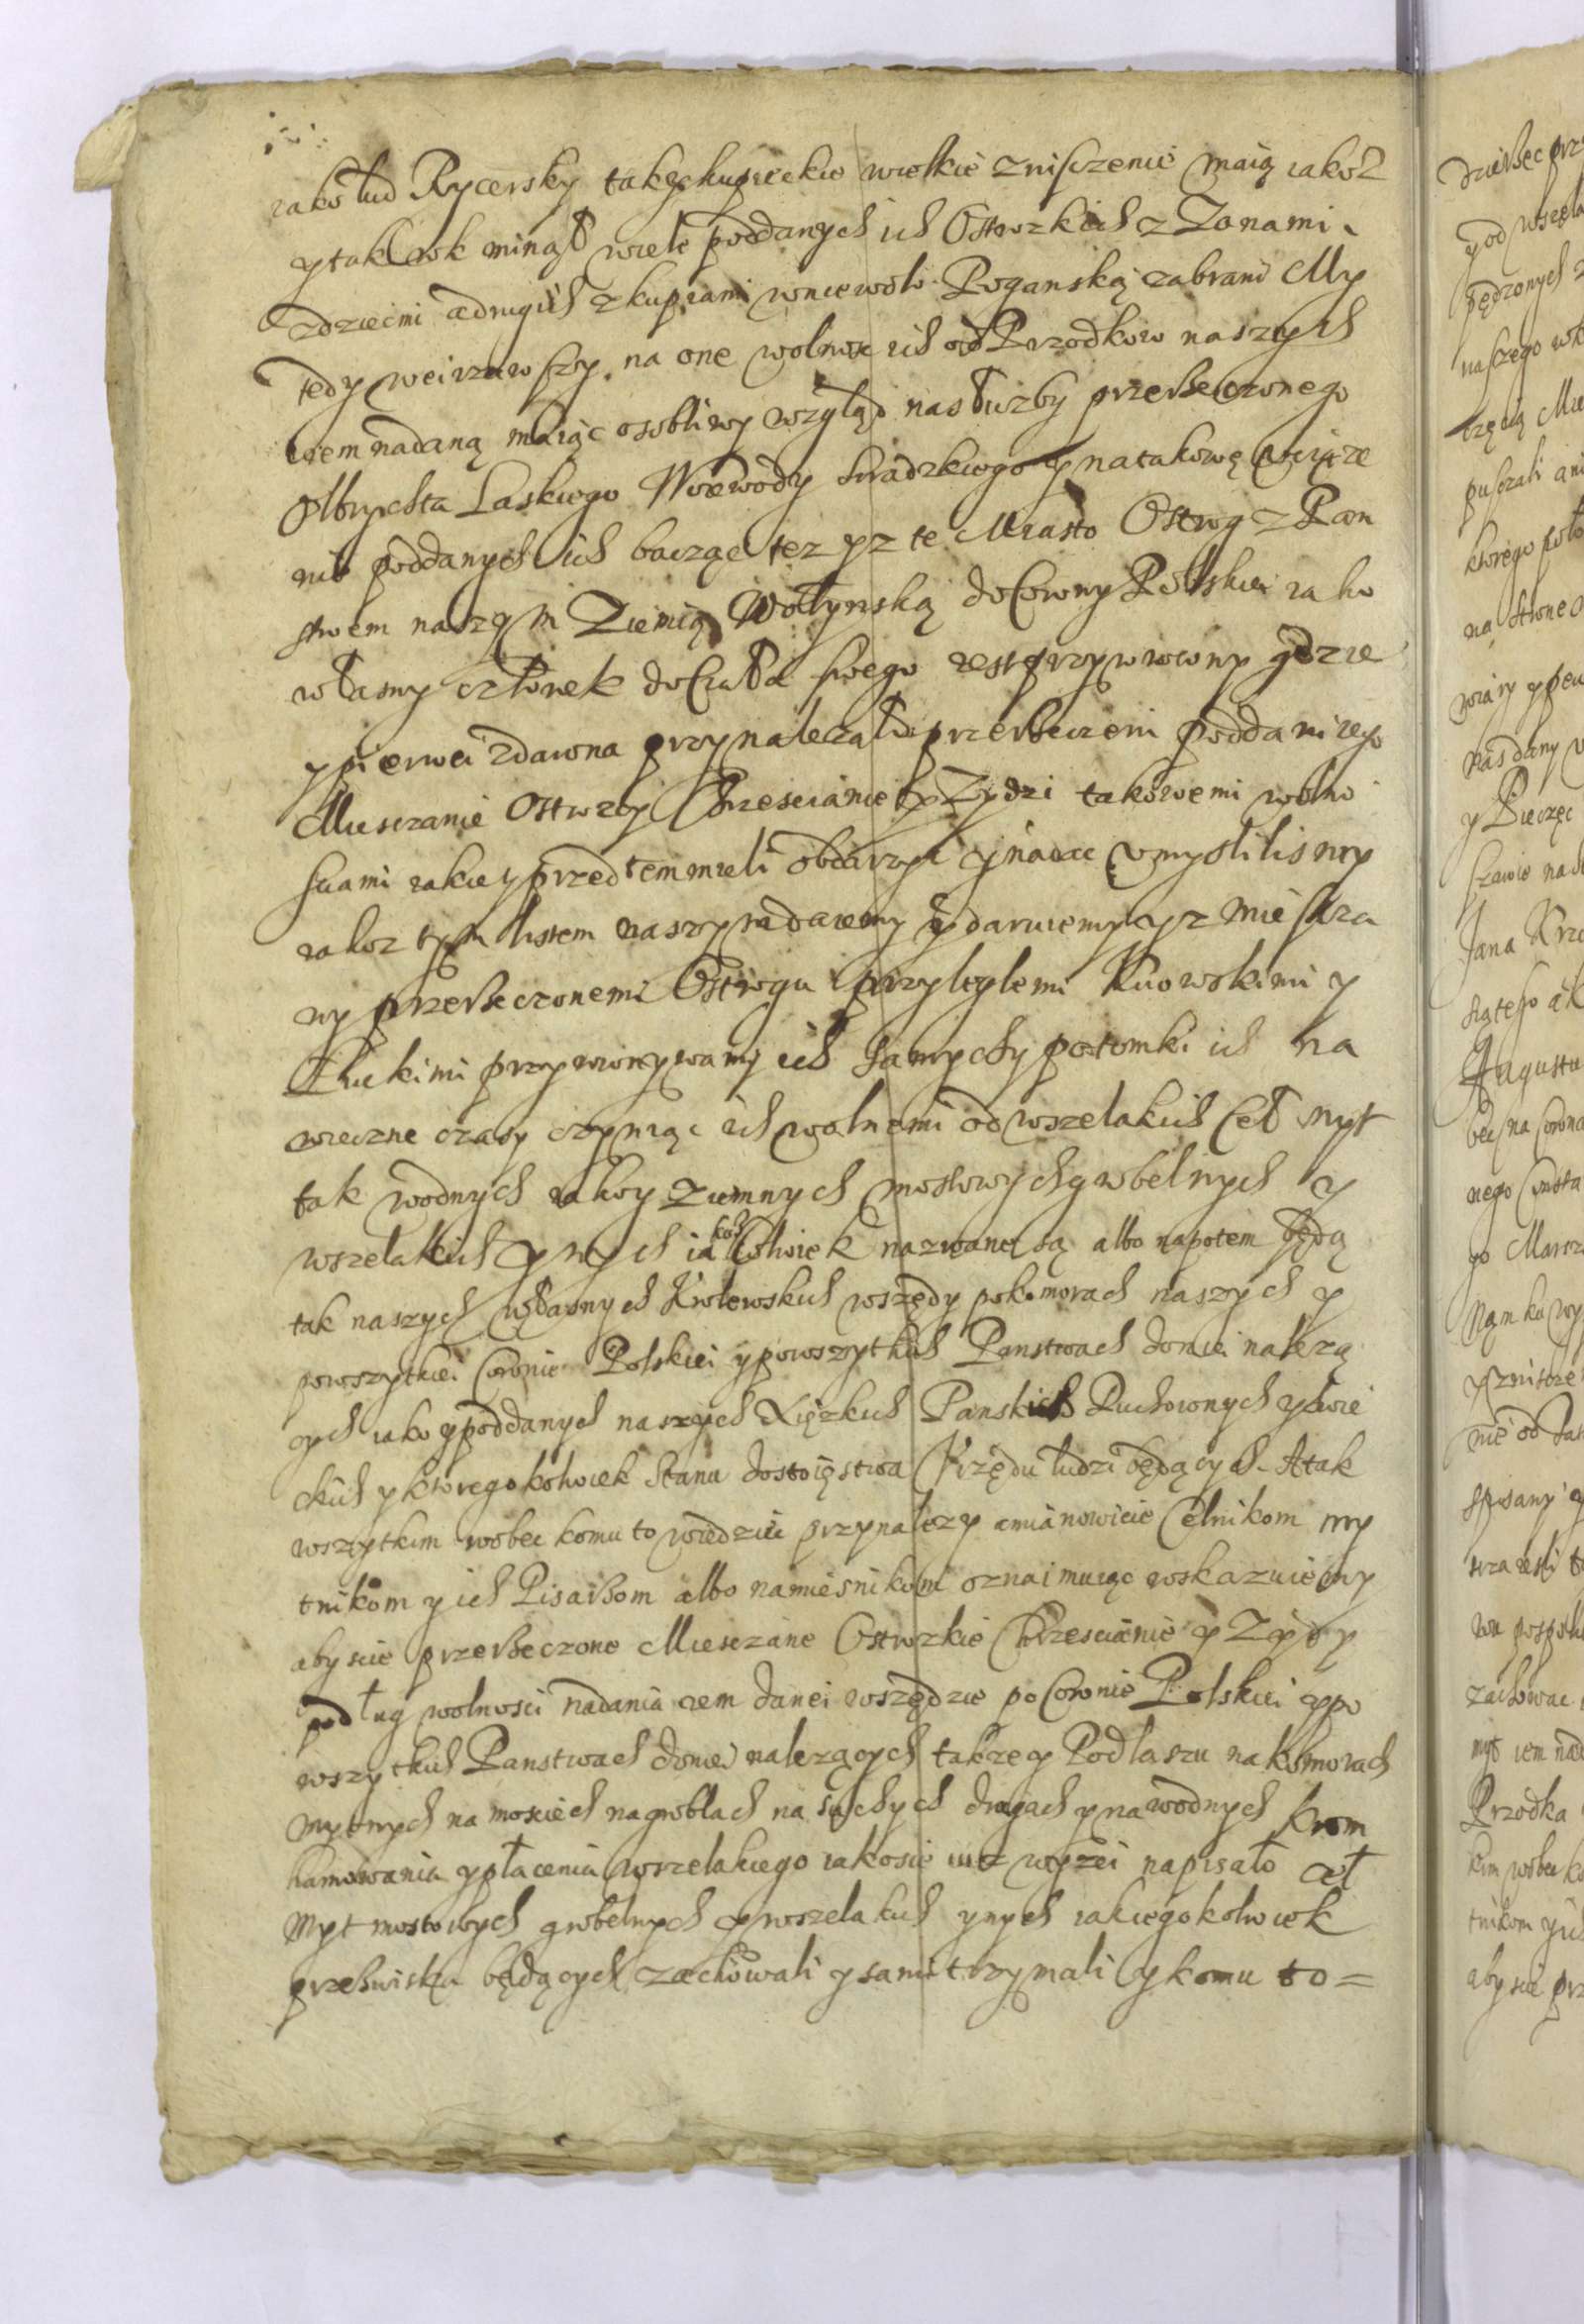 iako lud Rycersky tak y kupieckie wielkie zniszczenie maią iakoż
y tak rok minął wiele poddanych ich Ostrozkich z Zonami
z dziecmi a drugich z kupiami w niewolo Poganską zabrani My
tedy weirzawszy na one wolnosc ich od Przodkow naszych
iem nadaną maiąc osobliwy wzgląd na służby przerzeczonego
Olbrychta Laskiego Woiewody Siradzkiego y na takowę uciąze
nie poddanych ich bacząc tez yz te Miasto Ostrog z Pan
stwem naszym Ziemią Wołynską do Corony Polskiei iako
własny członek do Ciała swego iest przywrocony gdzie
y pierwei zdawna przynalezało przerzeczeni poddani iego
Miesczanie Ostrozcy Chrzescianie y Zydzi takowemi wolno
sciami iakie y przed tem mieli obdarzyc y nadac umyslilismy
iakoz tym listem naszym nadaiemy y daruiemy y z miescza
ny przerzeczonemi Ostrogu przyleglemi Kiiowskimi y
Łuckimi przyrownywamy ich samych y potomki ich na
wieczne czasy czyniąc ich wolnemi od wszelakich Ceł myt
tak wodnych iako y ziemnych mostowych grobelnych y
wszelakich ynych iakożkolwiek nazwane są albo napotem będą
tak naszych własnych Krolewskich wszędy po komorach naszych y
po wszytkiei Coronie Polskiei y po wszytkich Panstwach do niei nalezą
cych iako y poddanych naszych Xięzkich Panskich Duchownych y swie
ckich y ktoregokolwiek Stanu dostoięstwa Urzędu ludzi będących. A tak
wszytkim wobec komu to wiedziec przynalezy a mianowicie Celnikom my
tnikom y ich Pisarzom albo namiesnikom oznaimuiąc wskazuiemy
abyscie przerzeczone Miesczane Ostrozkie Chrzescianie y Zydy
podług wolnosci nadania iem danei wszędzie po Coronie Polskiei y po
wszytkich Panstwach do niei nalezących takze y Podlaszu na komorach
mytnych na mosciech na groblach na suchych drogach y na wodnych krom
hamowania y płacenia wszelakiego iako sie iuz wyzei napisało ceł
Myt mostowych grobelnych y wszelakich ynych iakiegokolwiek
przezwiska będących zachowali y sami trzymali y komu to=